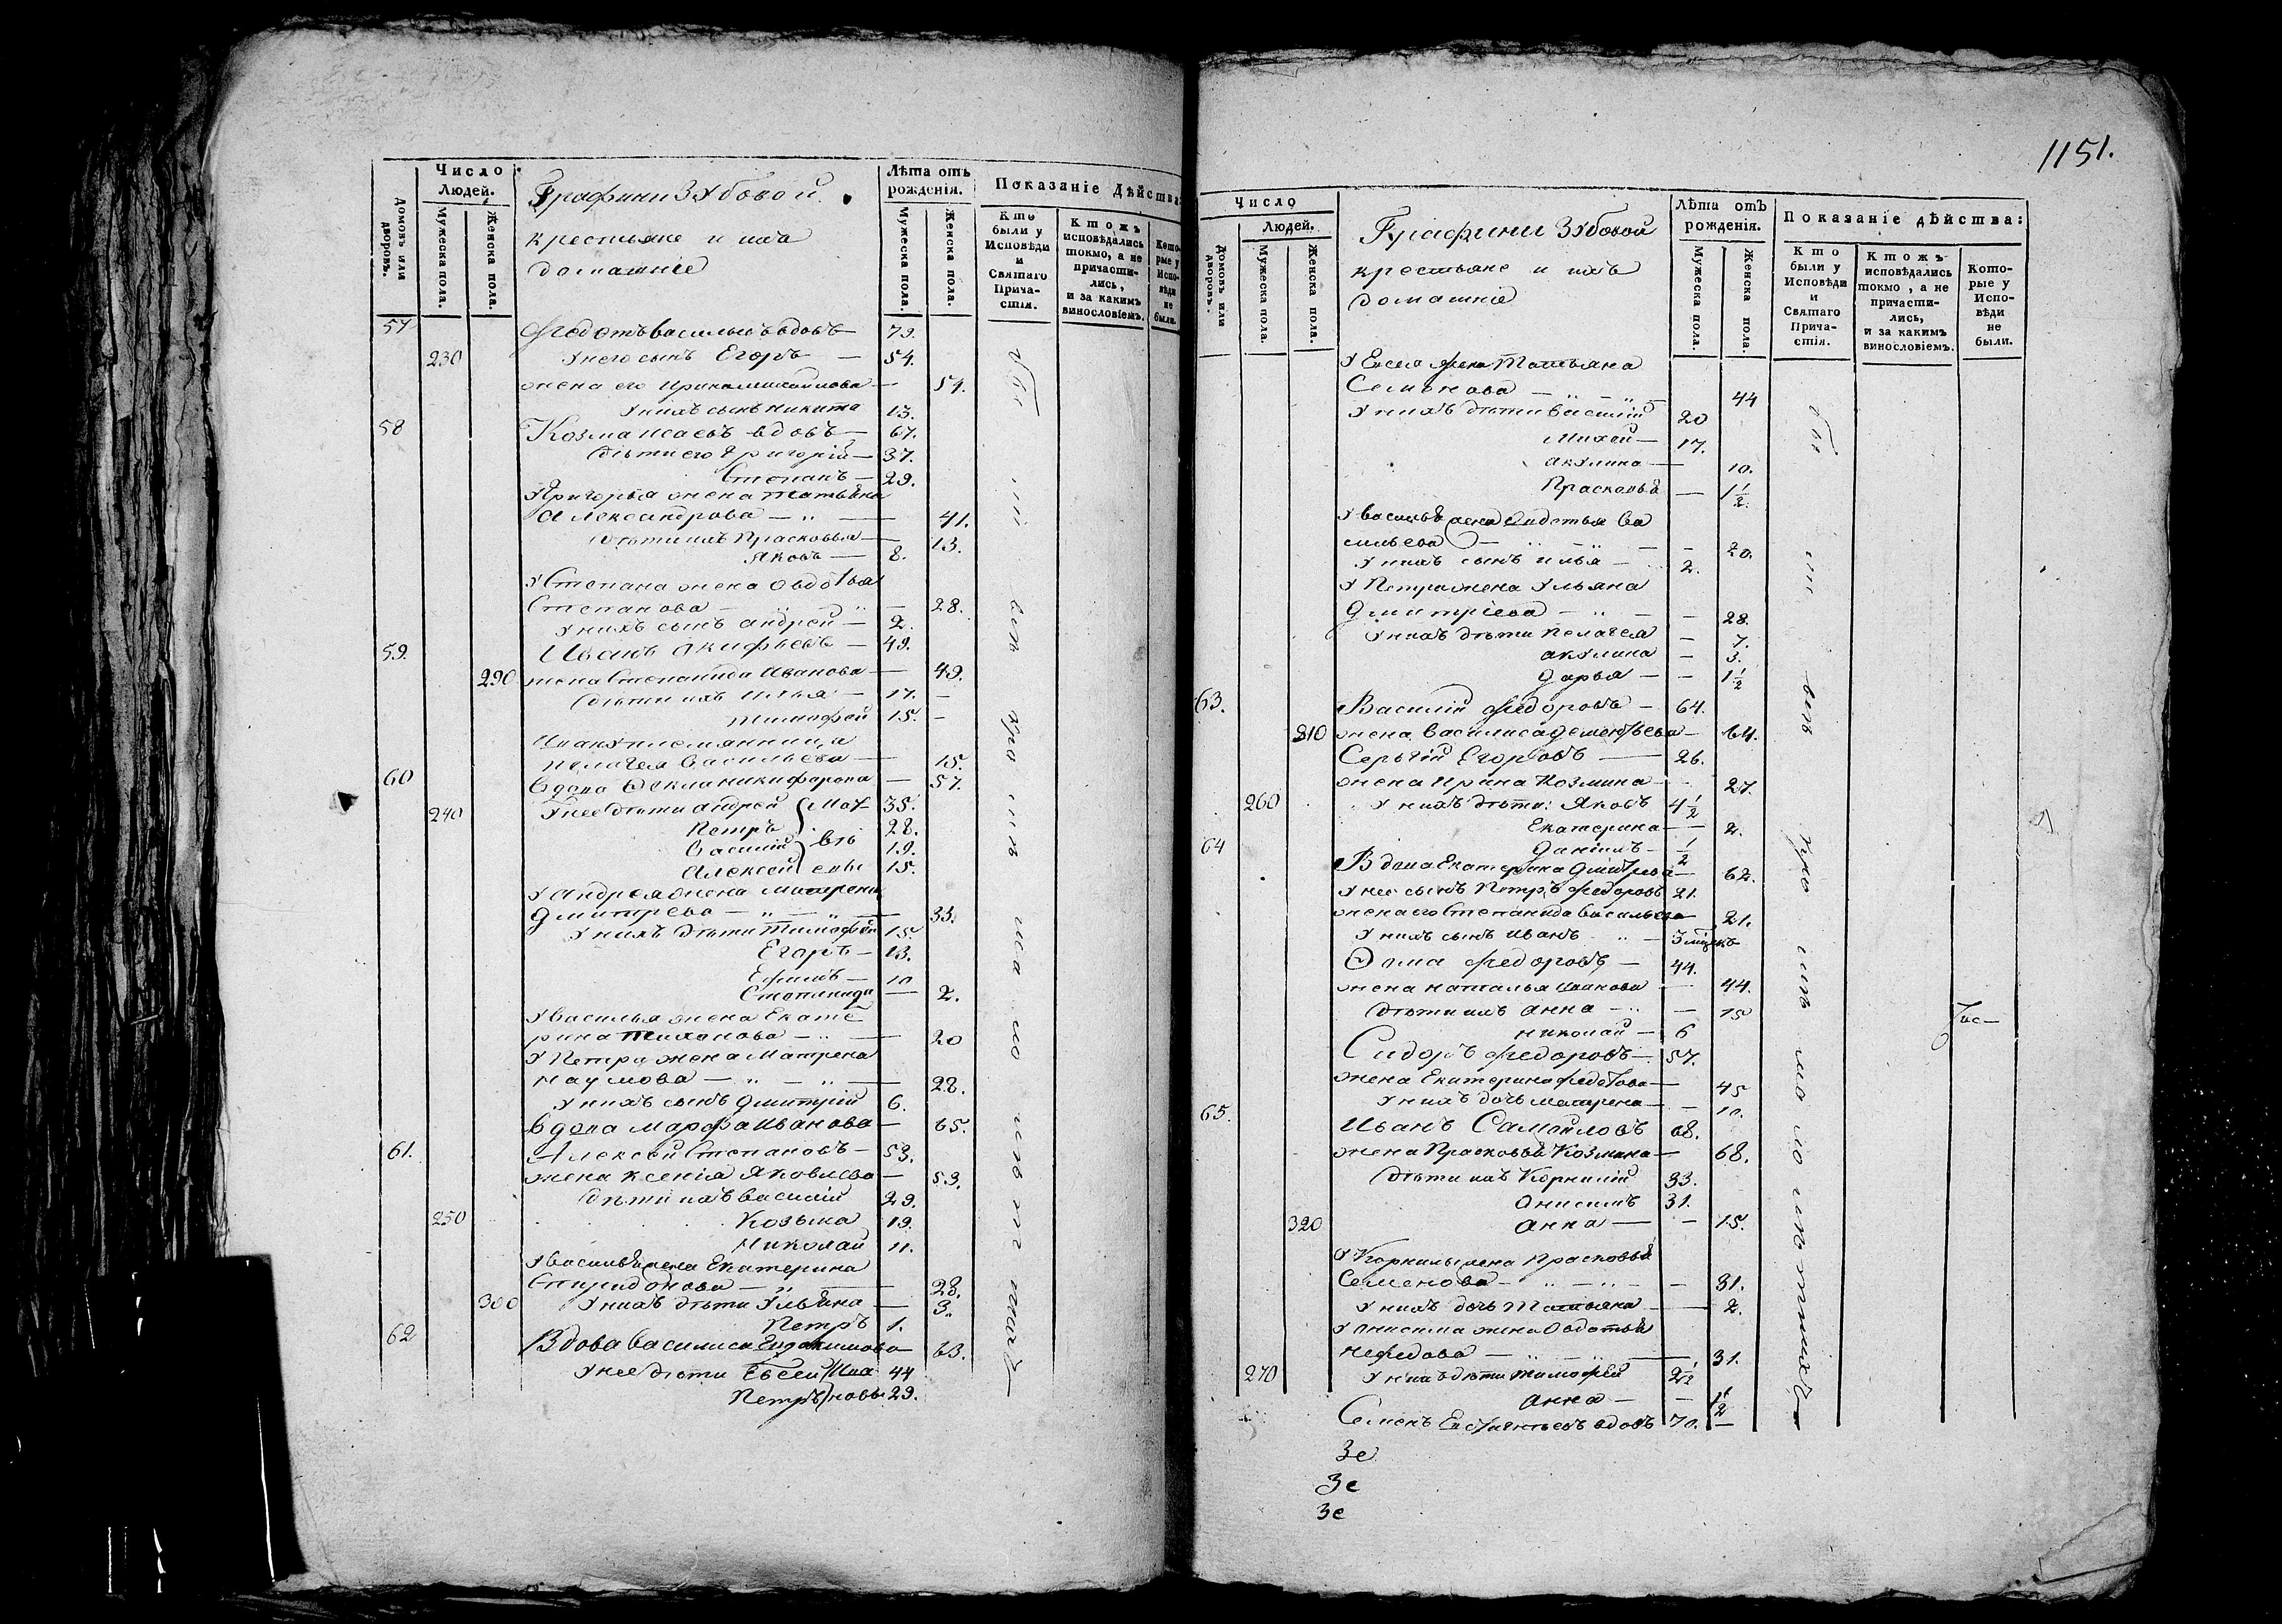 Число
Людей.
Домовъ или дворовъ.
Мужеска пола.
Женска пола.
Графини Зубовой
крестьяне и ихъ
домашніе
Лѣта отъ
рожденія.
Мужеска пола.
Женска пола.
Показаніе дѣйства:
Кто были у Исповѣди и Святаго Прича-стія.
Ктожъ исповѣдались токмо, а не причасти-лись, и за какимъ винословіемъ.
Кото-рые у Испо-вѣди не были.
57 Федотъ Васильевъ вдовъ — 79.
230 у него сынъ Егоръ — 54.
жена его Ирина — 54.
у нихъ сынъ Никита 13.
58 Козма Исаевъ вдовъ — 67.
дѣти его Григорій — 37.
Степанъ — 29.
у Григорья жена Татьяна
Александрова — „ — 41.
дѣти ихъ Прасковья — 13.
Яковъ — 8.
у Степана жена Овдотья
Степанова — „ — 28.
у нихъ сынъ Андрей — 2.
59. Иванъ Акифьевъ — 49.
290 жена Степанида Иванова — 49.
дѣти ихъ Илья — 17. —
Тимофей 15. —
племянница
Пелагея Васильева — 15.
60 вдова Фекла Никифорова — 57.
240 у нее дѣти Андрей 35.
Петръ 28.
Василій 19.
Алексей 15.
у Андрея жена Матрена
Дмитрева — „ — „ — 33.
у нихъ дѣти Тимофей 15.
Егоръ — 13.
Ефимъ — 10
Степанида — 2.
у Василья жена Екате
рина Тихонова — „ — 20
у Петра жена Матрена
Наумова — „ — „ — 28.
у нихъ сынъ Дмитрій 6.
вдова Марфа Иванова — 65.
61. Алексей Степановъ — 53.
жена Ксенія Яковлева — 53.
дѣти ихъ Василій 29.
250 Козьма 19.
Николай 11.
у Василья жена Екатерина
Спиридонова — „ — 28.
300 у нихъ дѣти Ульяна — 3.
Петръ 1.
62 Вдова Василиса Евдокимова 63.
у нее дѣти Евсей Ива 44
Петръ новы 29.
1151.
Число
Людей.
Домовъ или дворовъ.
Мужеска пола.
Женска пола.
Графини Зубовой
крестьяне и ихъ
домашніе
Лѣта отъ
рожденія.
Мужеска пола.
Женска пола.
Показаніе дѣйства:
Кто были у Исповѣди и Святаго Прича-стія.
Ктожъ исповѣдались токмо, а не причасти-лись, и за какимъ винословіемъ.
Кото-рые у Испо-вѣди не были.
у Евсея жена Татьяна
Семенова — „ — „ — 44
у нихъ дѣти Василій 20
Михей — 17.
Акулина — 10.
Прасковья — 1 1/2.
у Василья жена Авдотья Ва
сильева — „ — „ — 20.
у нихъ сынъ Илья — 2.
у Петра жена Ульяна
Дмитріева — „ — 28.
у нихъ дѣти Пелагея — 7.
Акулина — 3.
Дарья — — 1 1/2
63. Василій Федоровъ — 64.
310 жена Василиса Дементьева — 64.
Сергій Егоровъ — 26.
жена Ирина Козмина — 27.
260 у нихъ дѣти: Яковъ 4 1/2
Екатерина — — 2.
Даніилъ — 1/2
64 Вдова Екатерина Дмитрева — 62.
у нее сынъ Петръ Федоровъ 21.
жена его Степанида Васильева — 21.
у нихъ сынъ Иванъ „ —
Фома Федоровъ — 44.
жена Наталья Иванова — 44.
дѣти ихъ Анна — „ — 15
Николай — 6
Сидоръ Федоровъ — 57.
жена Екатерина Федотова — 45
у нихъ дочь Матрена — — 10.
65. Иванъ Самойловъ 68.
жена Прасковья Козмина — 68.
дѣти ихъ Корнилій 33.
Анисимъ 31.
320 Анна — — 15.
у Корнилы жена Прасковья
Семенова — „ — „ — — 31.
у нихъ дочь Татьяна — — 2.
у Анисима жена Овдотья
Нефедова — „ — „ — 31.
270 у нихъ дѣти Тимофей 2 1/2
Анна — — 1 1/2
Семенъ вдовъ 70. —
Зе
Зе
Зе